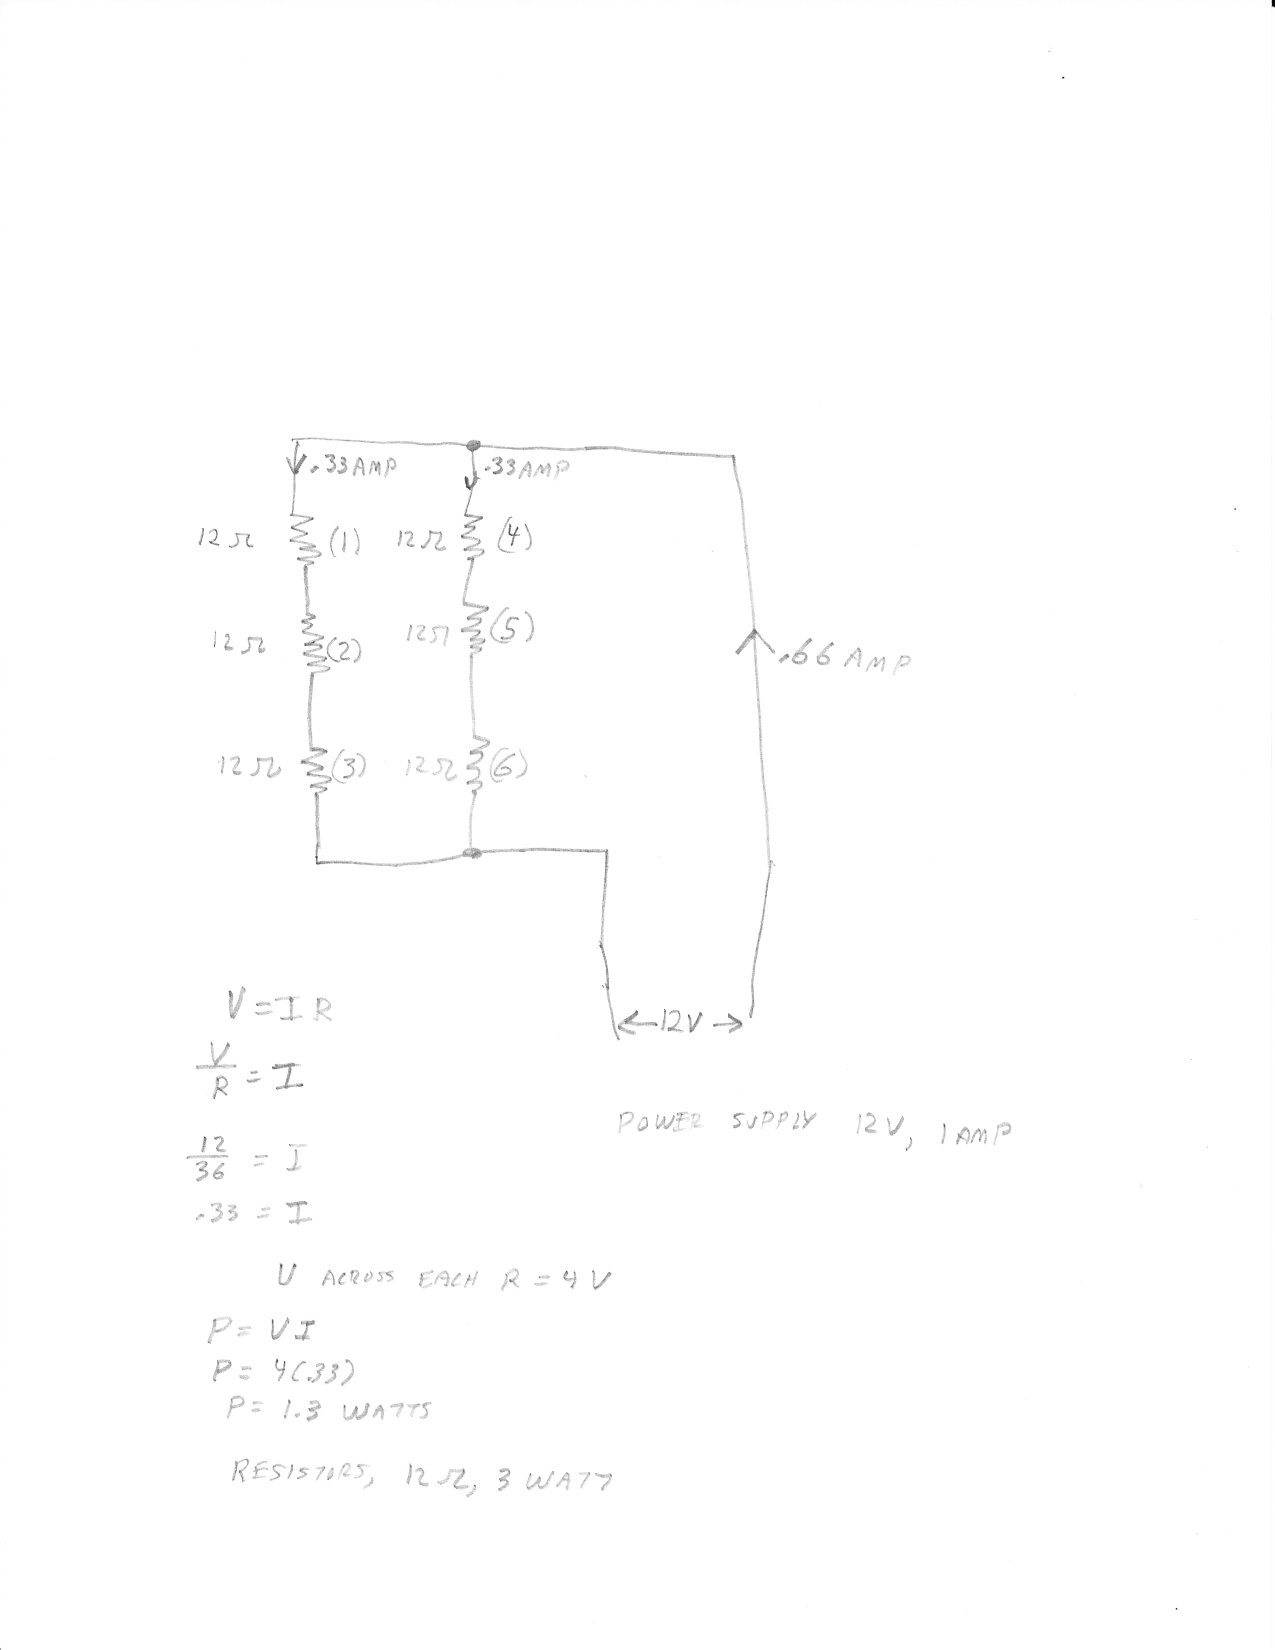 .33 AMP .33 AMP
12 Ω (1) 12 Ω (4)
12 Ω (2) 12 Ω (5)
.66 AMP
12 Ω (3) 12 Ω (6)
V = I R
←12V→
V/R = I
POWER SUPPLY 12V, 1 AMP
12/36 = I
.33 = I
V ACROSS EACH R = 4 V
P = VI
P = 4(.33)
P = 1.3 WATTS
RESISTORS, 12 Ω, 3 WATT